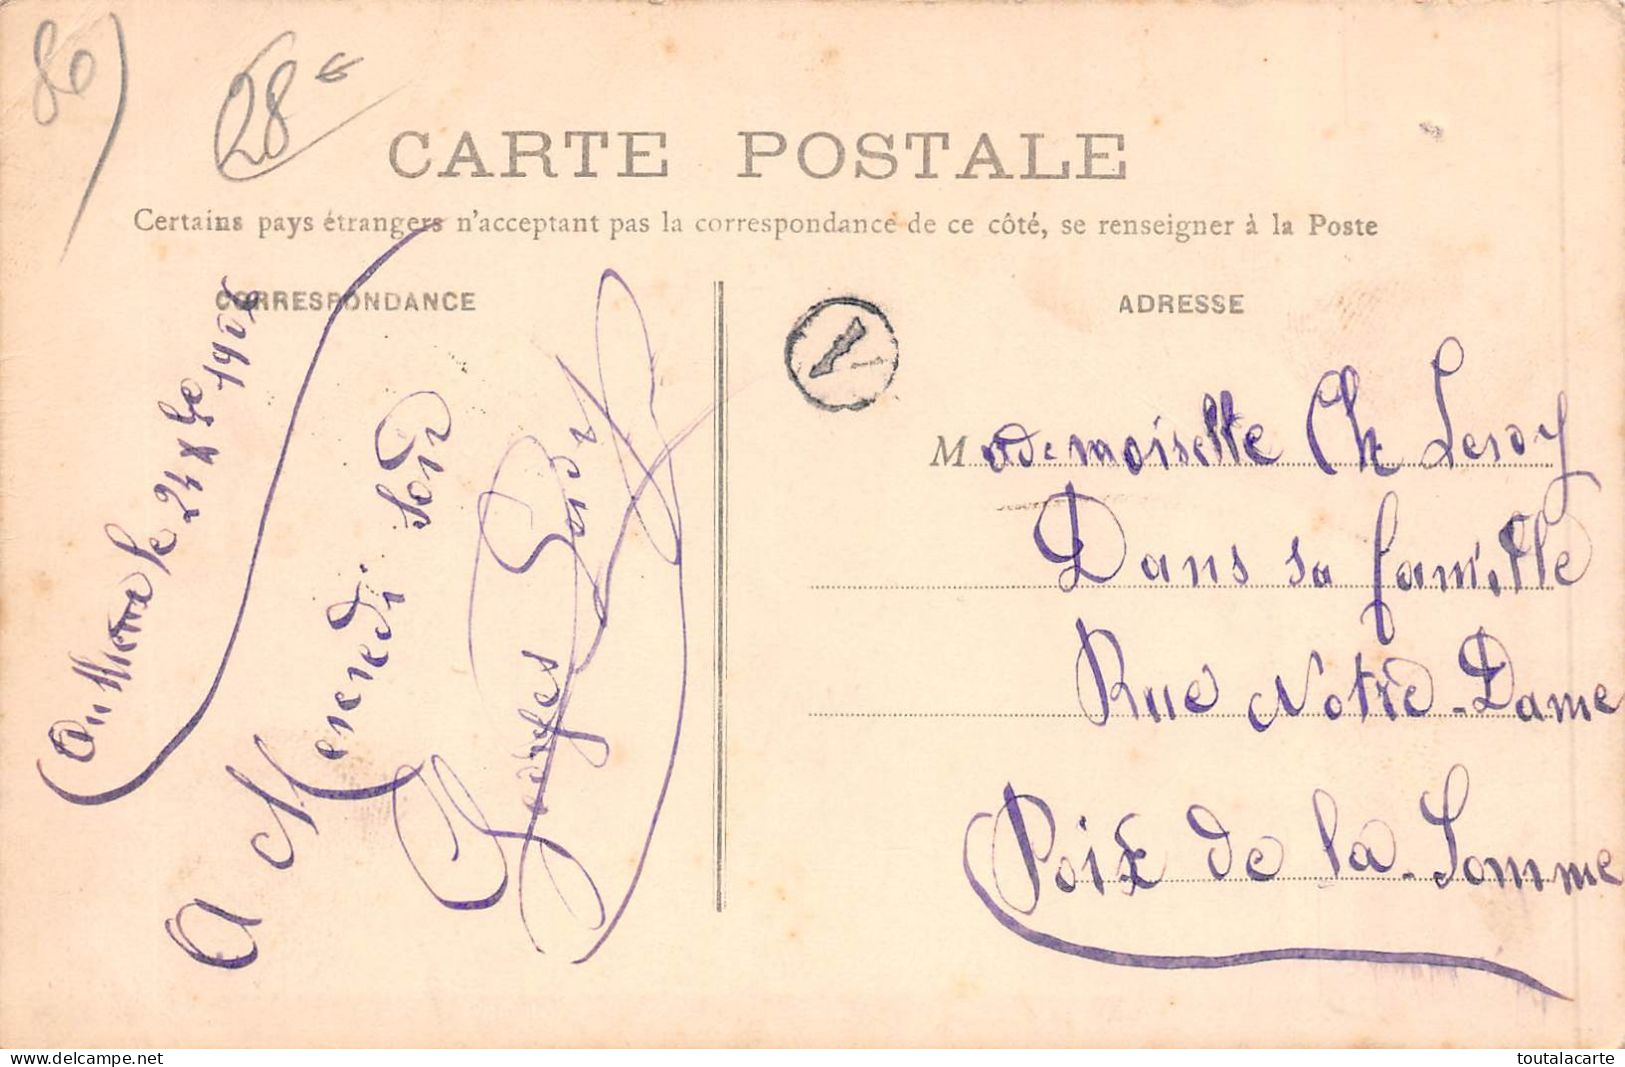 86
28 €
CARTE POSTALE
Certains pays étrangers n'acceptant pas la correspondance de ce côté, se renseigner à la Poste
CORRESPONDANCE
ADRESSE
le 24 Xbe
A Mercredi Soir
Georges
1
Mademoiselle Ch Leroy
Dans sa famille
Rue Notre-Dame
Poix de la Somme
http://www.delcampe.net
toutalacarte